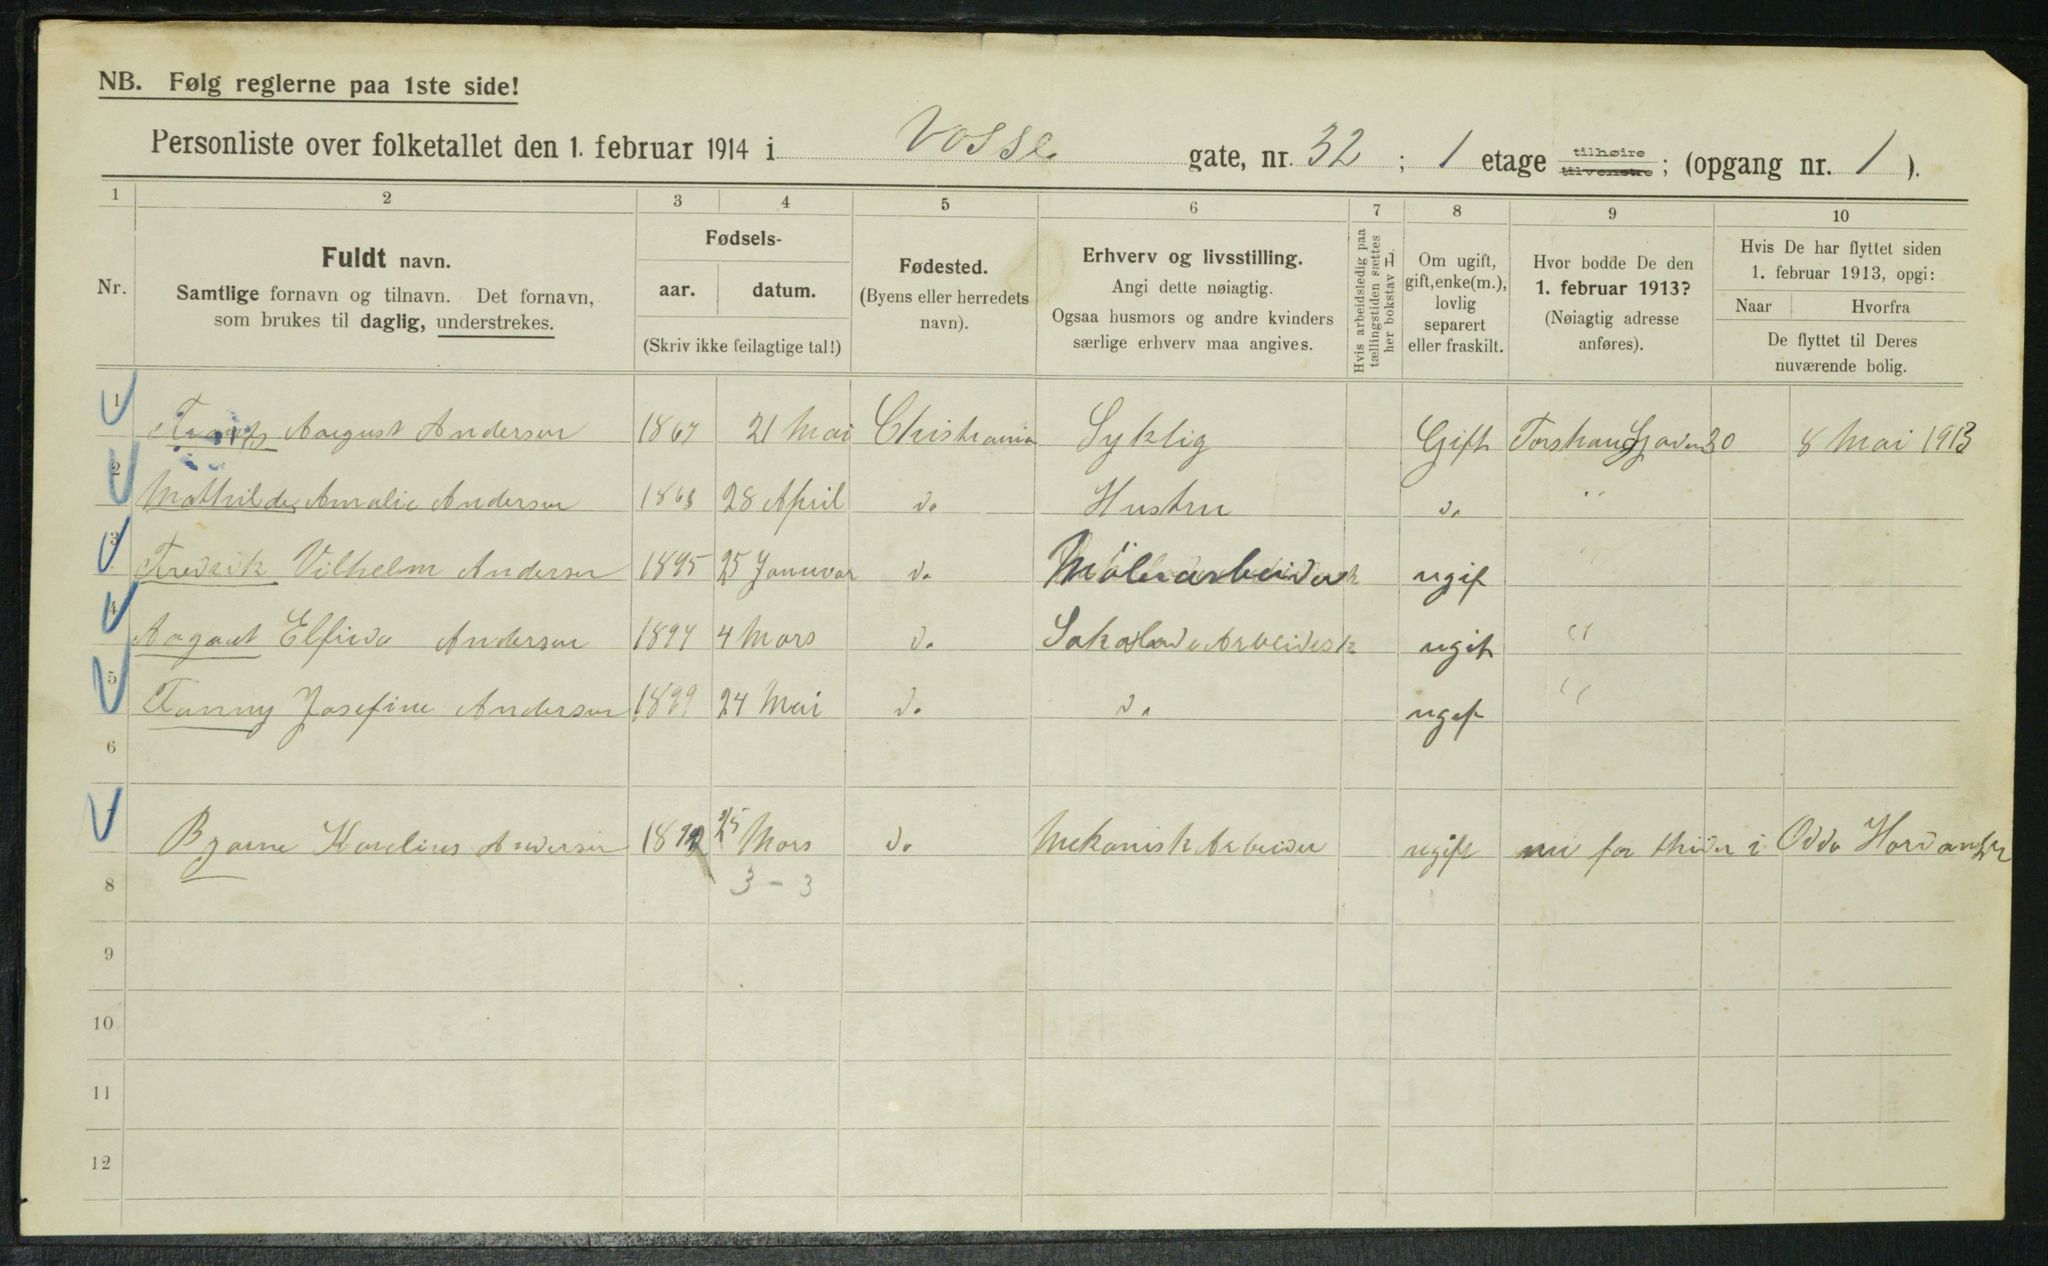 NB. Følg reglerne paa 1ste side!
Personliste over folketallet den 1. februar 1914 i Vosse gate, nr. 32 ; 1 etage tilhøire tilvenstre ; (opgang nr. 1 ).
1 2 3 4 5 6 7 8 9 10
Nr.
Fuldt navn.
Samtlige fornavn og tilnavn. Det fornavn,
som brukes til daglig, understrekes.
Fødsels-
aar. datum.
(Skriv ikke feilagtige tal!)
Fødested.
(Byens eller herredets
navn).
Erhverv og livsstilling.
Angi dette nøiagtig.
Ogsaa husmors og andre kvinders
særlige erhverv maa angives.
Hvis arbeidsledig paa
tællingstiden sættes
her bokstav L.
Om ugift,
gift, enke(m.),
lovlig
separert
eller fraskilt.
Hvor bodde De den
1. februar 1913?
(Nøiagtig adresse
anføres).
Hvis De har flyttet siden
1. februar 1913, opgi:
Naar Hvorfra
De flyttet til Deres
nuværende bolig.
1 August Andersen 1867 21 Mai Christiania Syklig Gift 8 Mai 1913
2 Mathilde Amalie Andersen 28 April do Hustru do "
3 Fredrik Vilhelm Andersen 1895 25 Januvar do ugif "
4 Elfrida Andersen 1897 4 Mars do ugift "
5 Fanny Josefine Andersen 1899 24 Mai do do ugift "
6
7 Bjarne Karelius Andersen 25 Mars do Mekanisk Arbeider ugift nu for thiden i Odda Hardanger
8 3 – 3
9
10
11
12